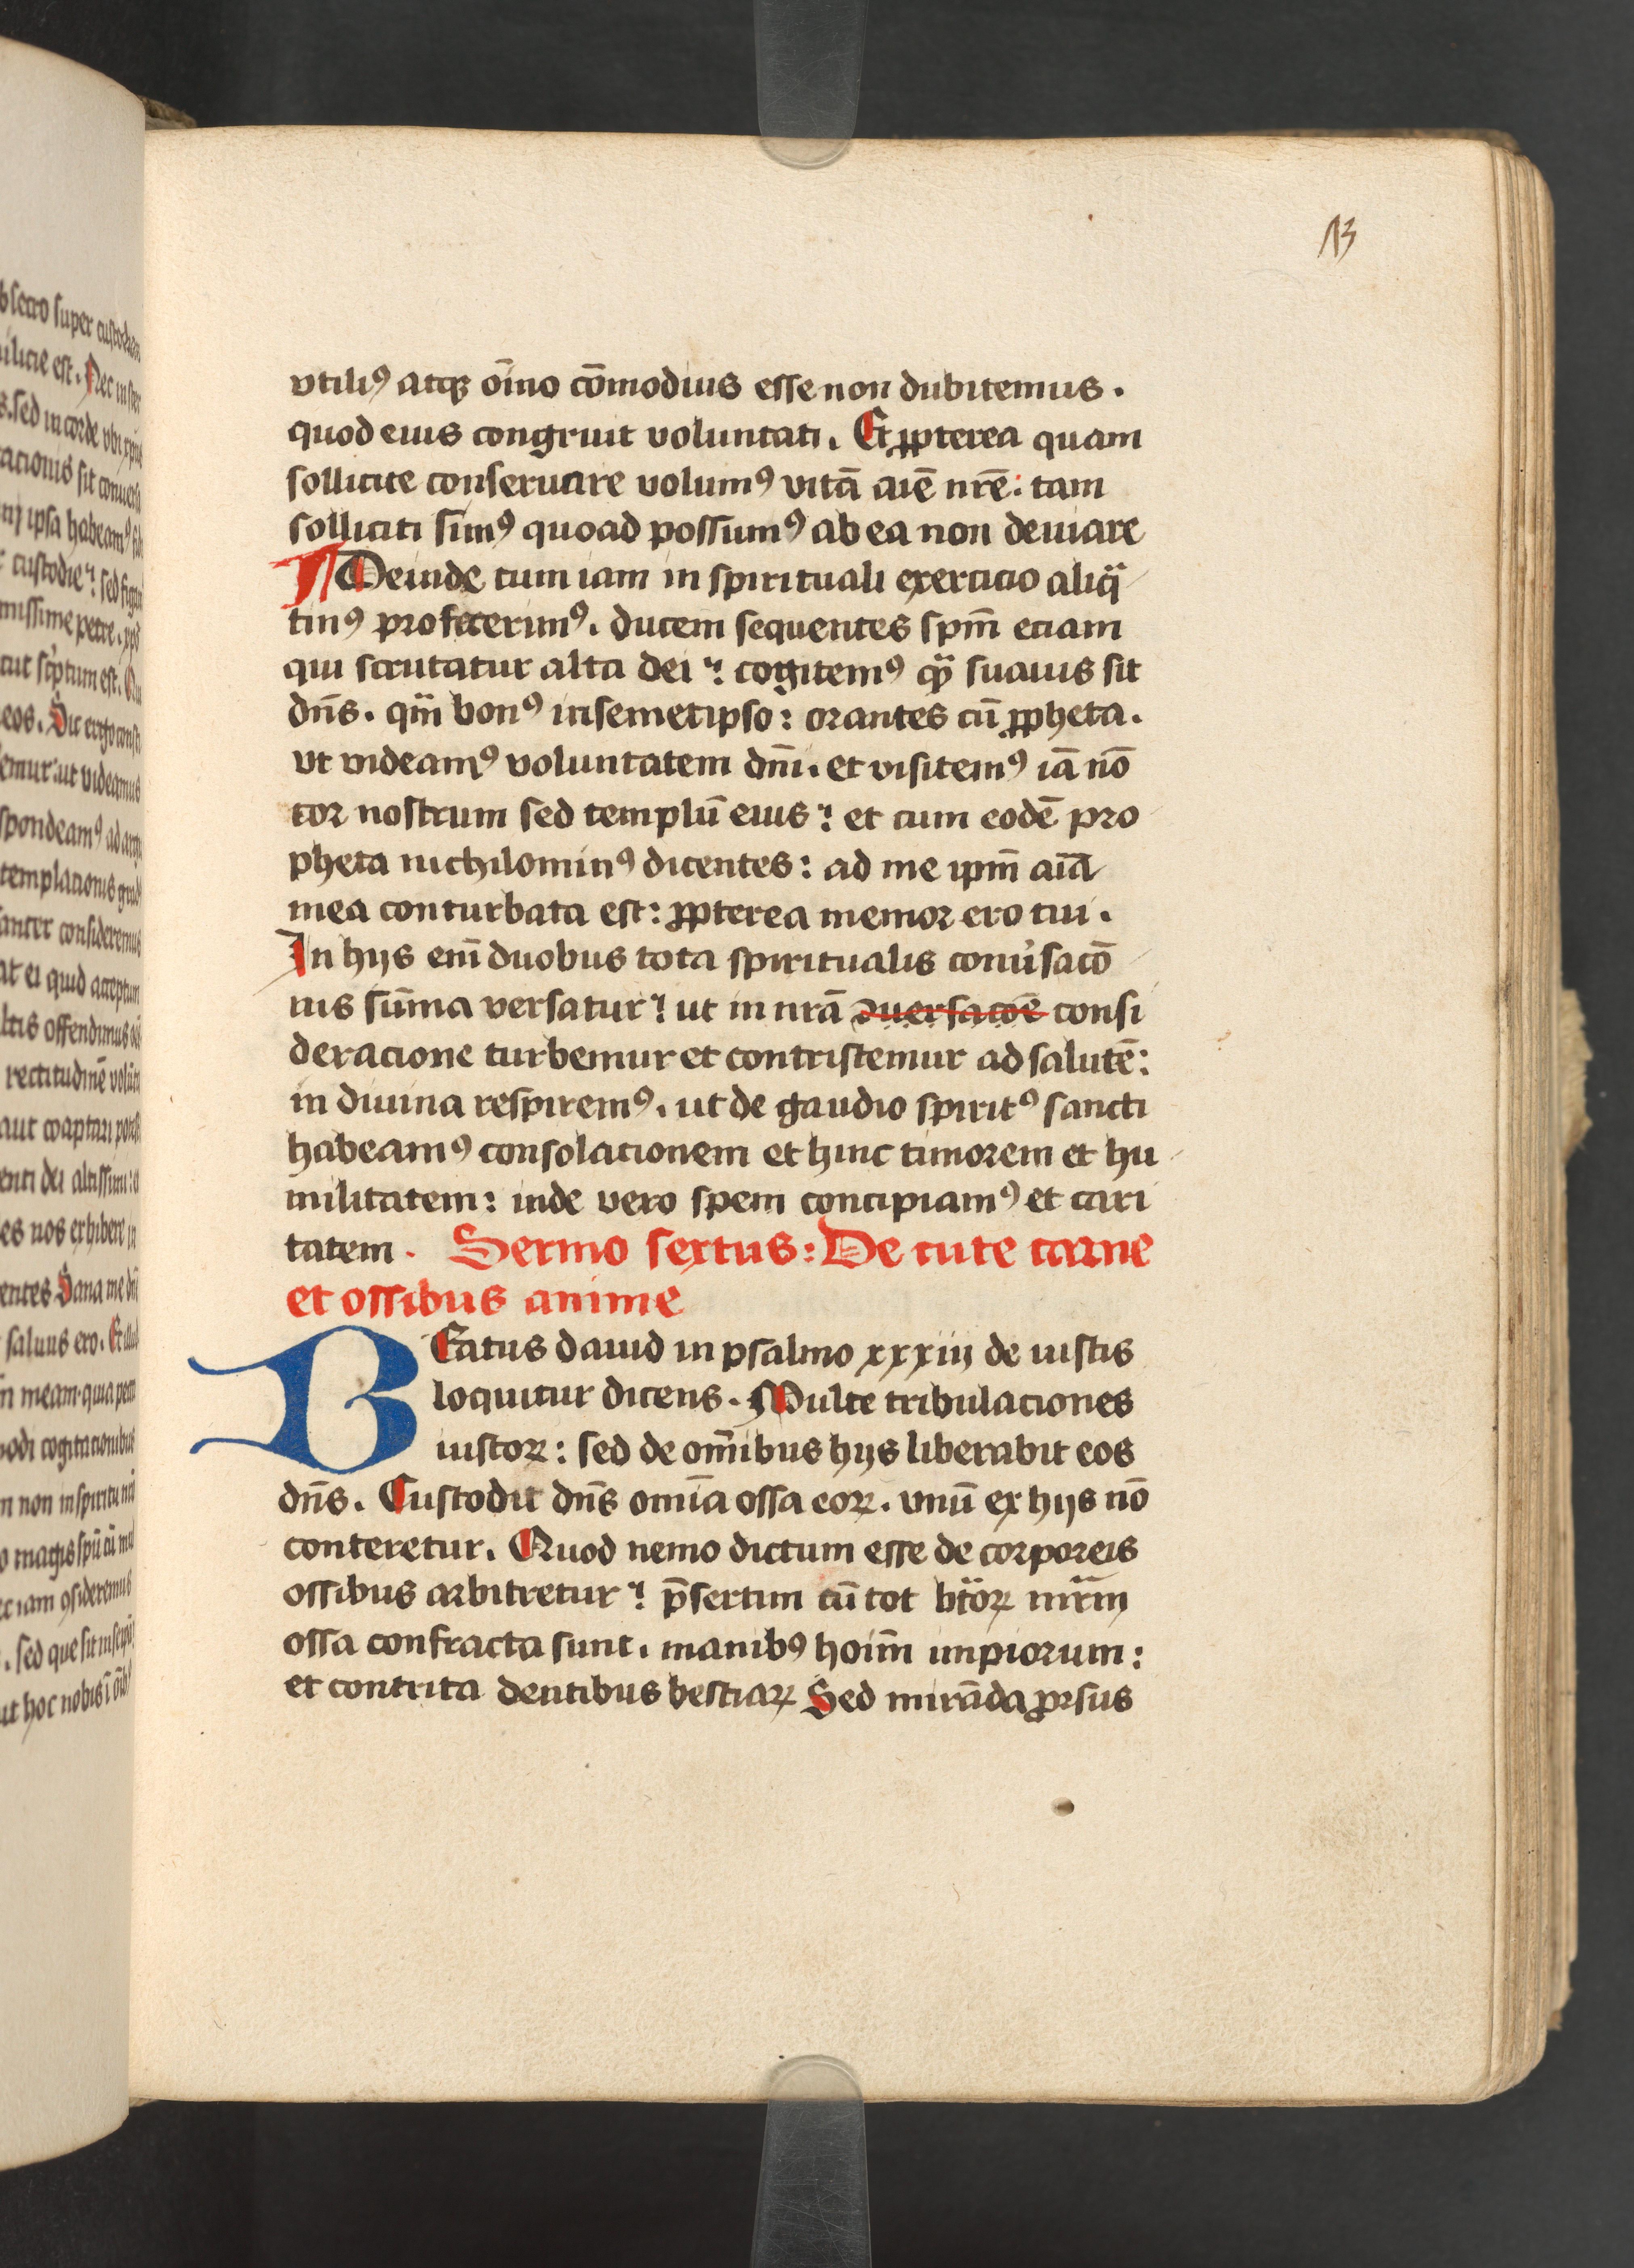 13
vtiliꝯ atqꝫ oı̄no cōmodius esse non dubitemus.
quod eius congruit voluntati. Et ꝓpterea quam
sollicite conseruare volumꝯ vitā aīe nr̄e: tam
solliciti simꝯ quoad possumꝯ ab ea non deuiare
¶ Deinde cum iam in spirituali exercicio aliqͣ
tinꝯ profecerimꝯ. ducem sequentes spm̄ eciam
qui scrutatur alta dei: cogitemꝯ qͣ suauis sit
dn̄s. qͣm bonꝯ insemetipso: orantes cū ꝓpheta.
vt videamꝯ voluntatem dn̄i. et visitemꝯ iā nō
cor nostrum sed templū eius: et cum eodē pro
pheta nichilominꝯ dicentes: ad me ipm̄ aīa
mea conturbata est: ꝓpterea memor ero tui.
In hijs em̄ duobus tota spiritualis conu̓sacō
nis sūma versatur: ut in nrā ꝯuersacōe consi
deracione turbemur et contristemur ad salutē:
in diuina respiremꝯ. ut de gaudio spiritꝯ sancti
habeamꝯ consolacionem et hinc timorem et hu
militatem: inde vero spem concipiamꝯ et cari
tatem. Sermo sextus: De cute carne
et ossibus anime
BEatus dauid in psalmo xxxiij de iustis
loquitur dicens. Multe tribulaciones
iustoꝝ: sed de om̄ibus hijs liberabit eos
dn̄s. Custodit dn̄s omīa ossa eoꝝ. vnū ex hijs nō
conteretur. Quod nemo dictum esse de corporeis
ossibus arbitretur: p̄sertim cū tot btōꝝ mr̄m
ossa confracta sunt. manibꝯ hoīm impiorum:
et contrita dentibus bestiaꝝ Sed mirāda ꝓrsus